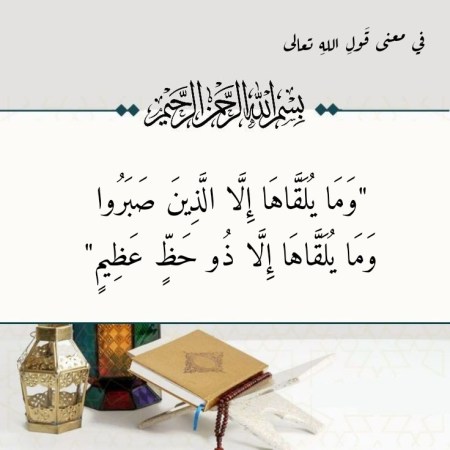 في معنى قَولِ اللهِ تعالى
بِسْمِ اللَّهِ الرَّحْمَنِ الرَّحِيمِ
"وَمَا يُلَقَّاهَا إِلَّا الَّذِينَ صَبَرُوا
وَمَا يُلَقَّاهَا إِلَّا ذُو حَظٍّ عَظِيمٍ"